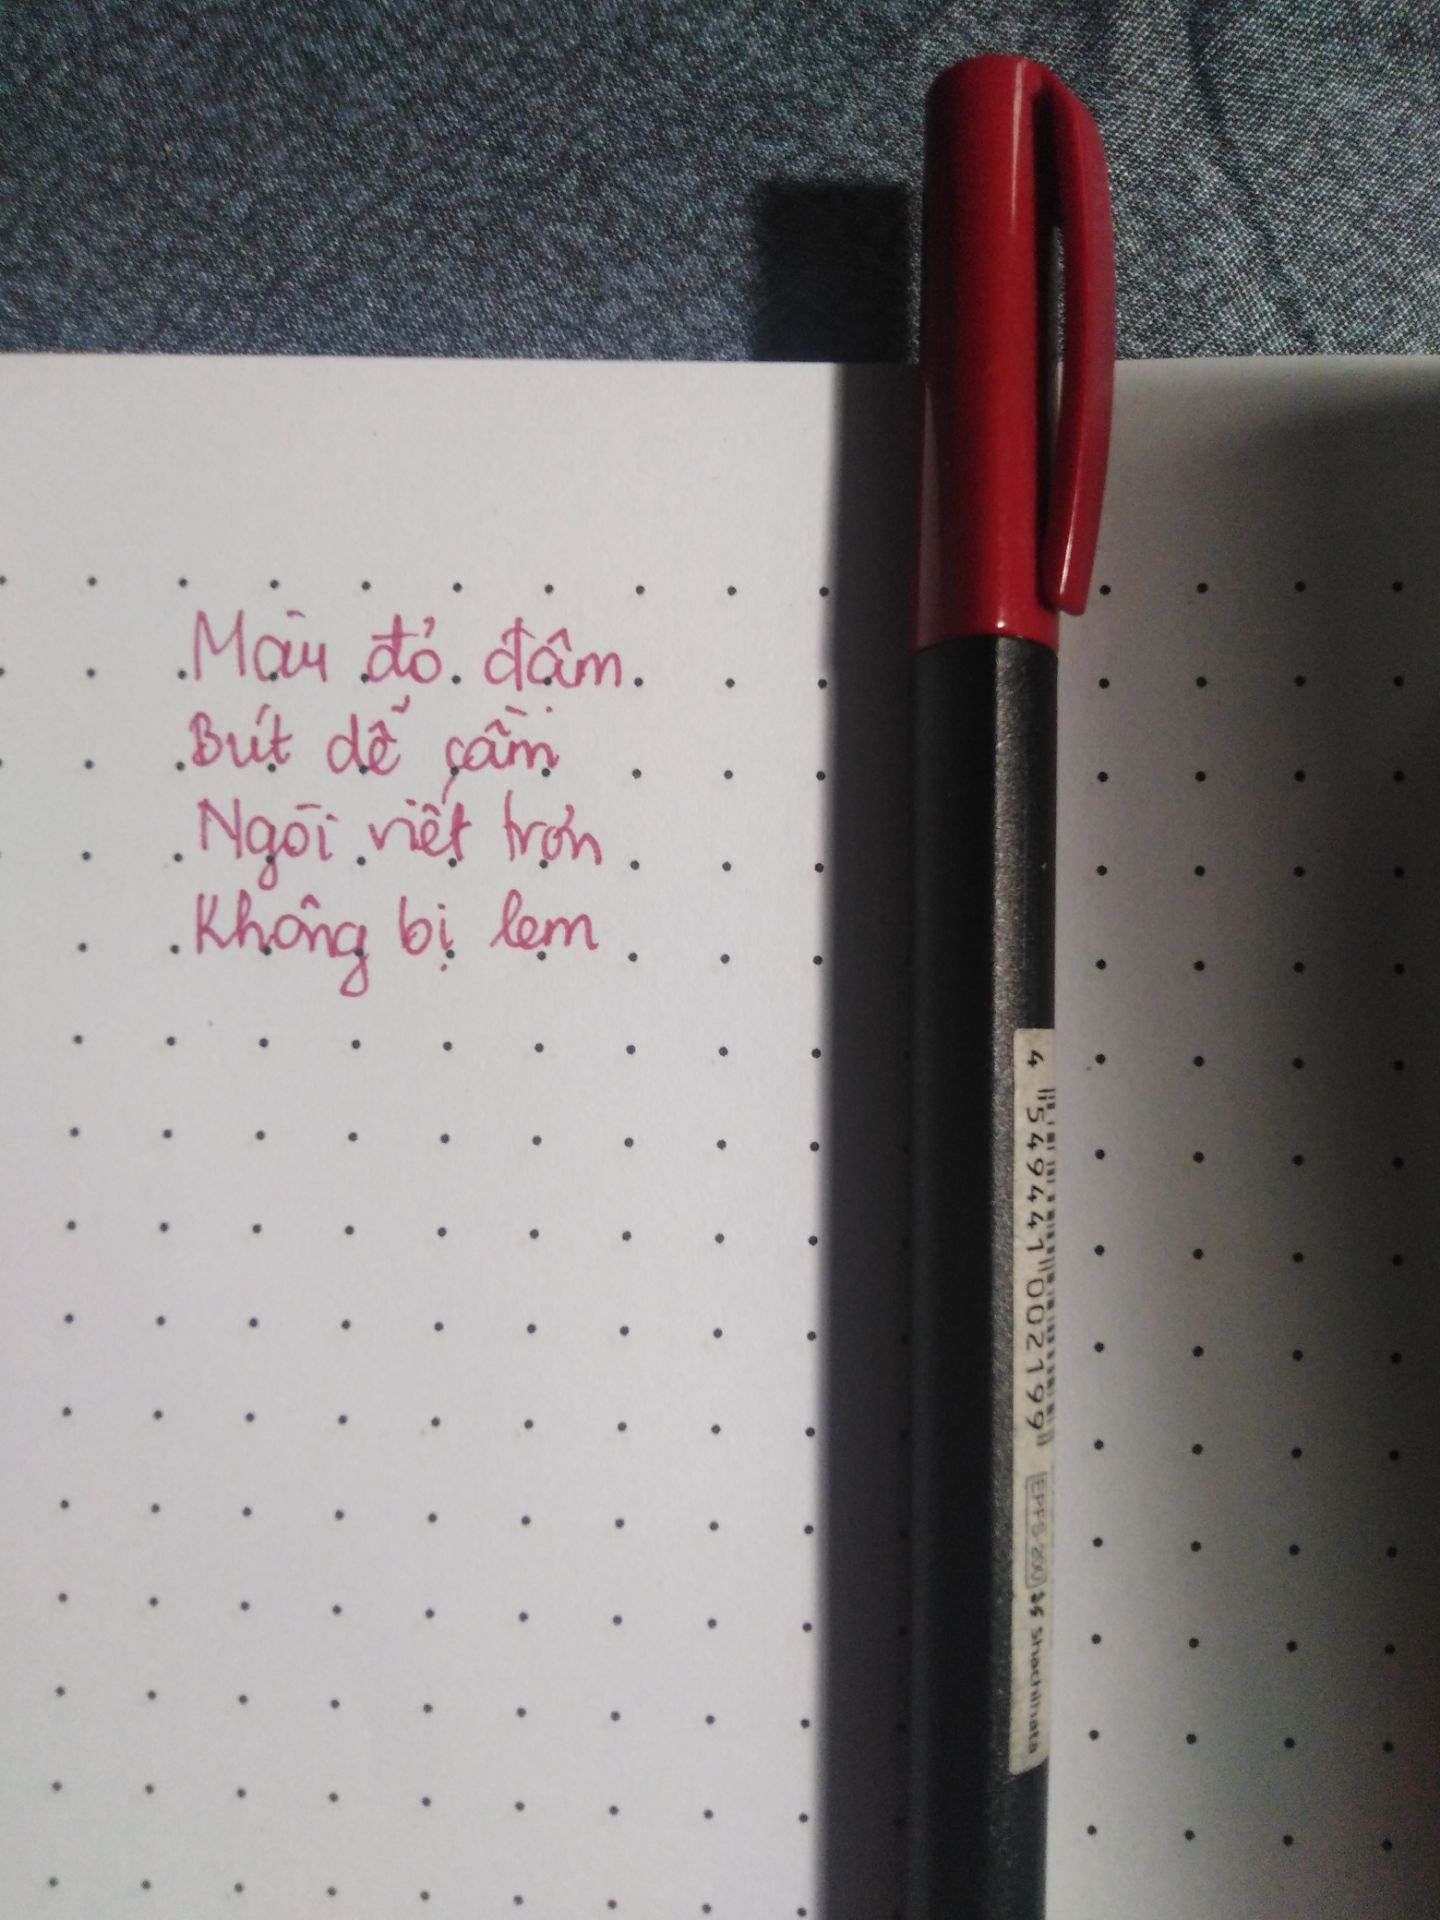 Màu đỏ đậm
Bút dễ cầm
Ngòi viết trơn
Không bị lem
4 549441 002199
EPFS-200 Shachihata